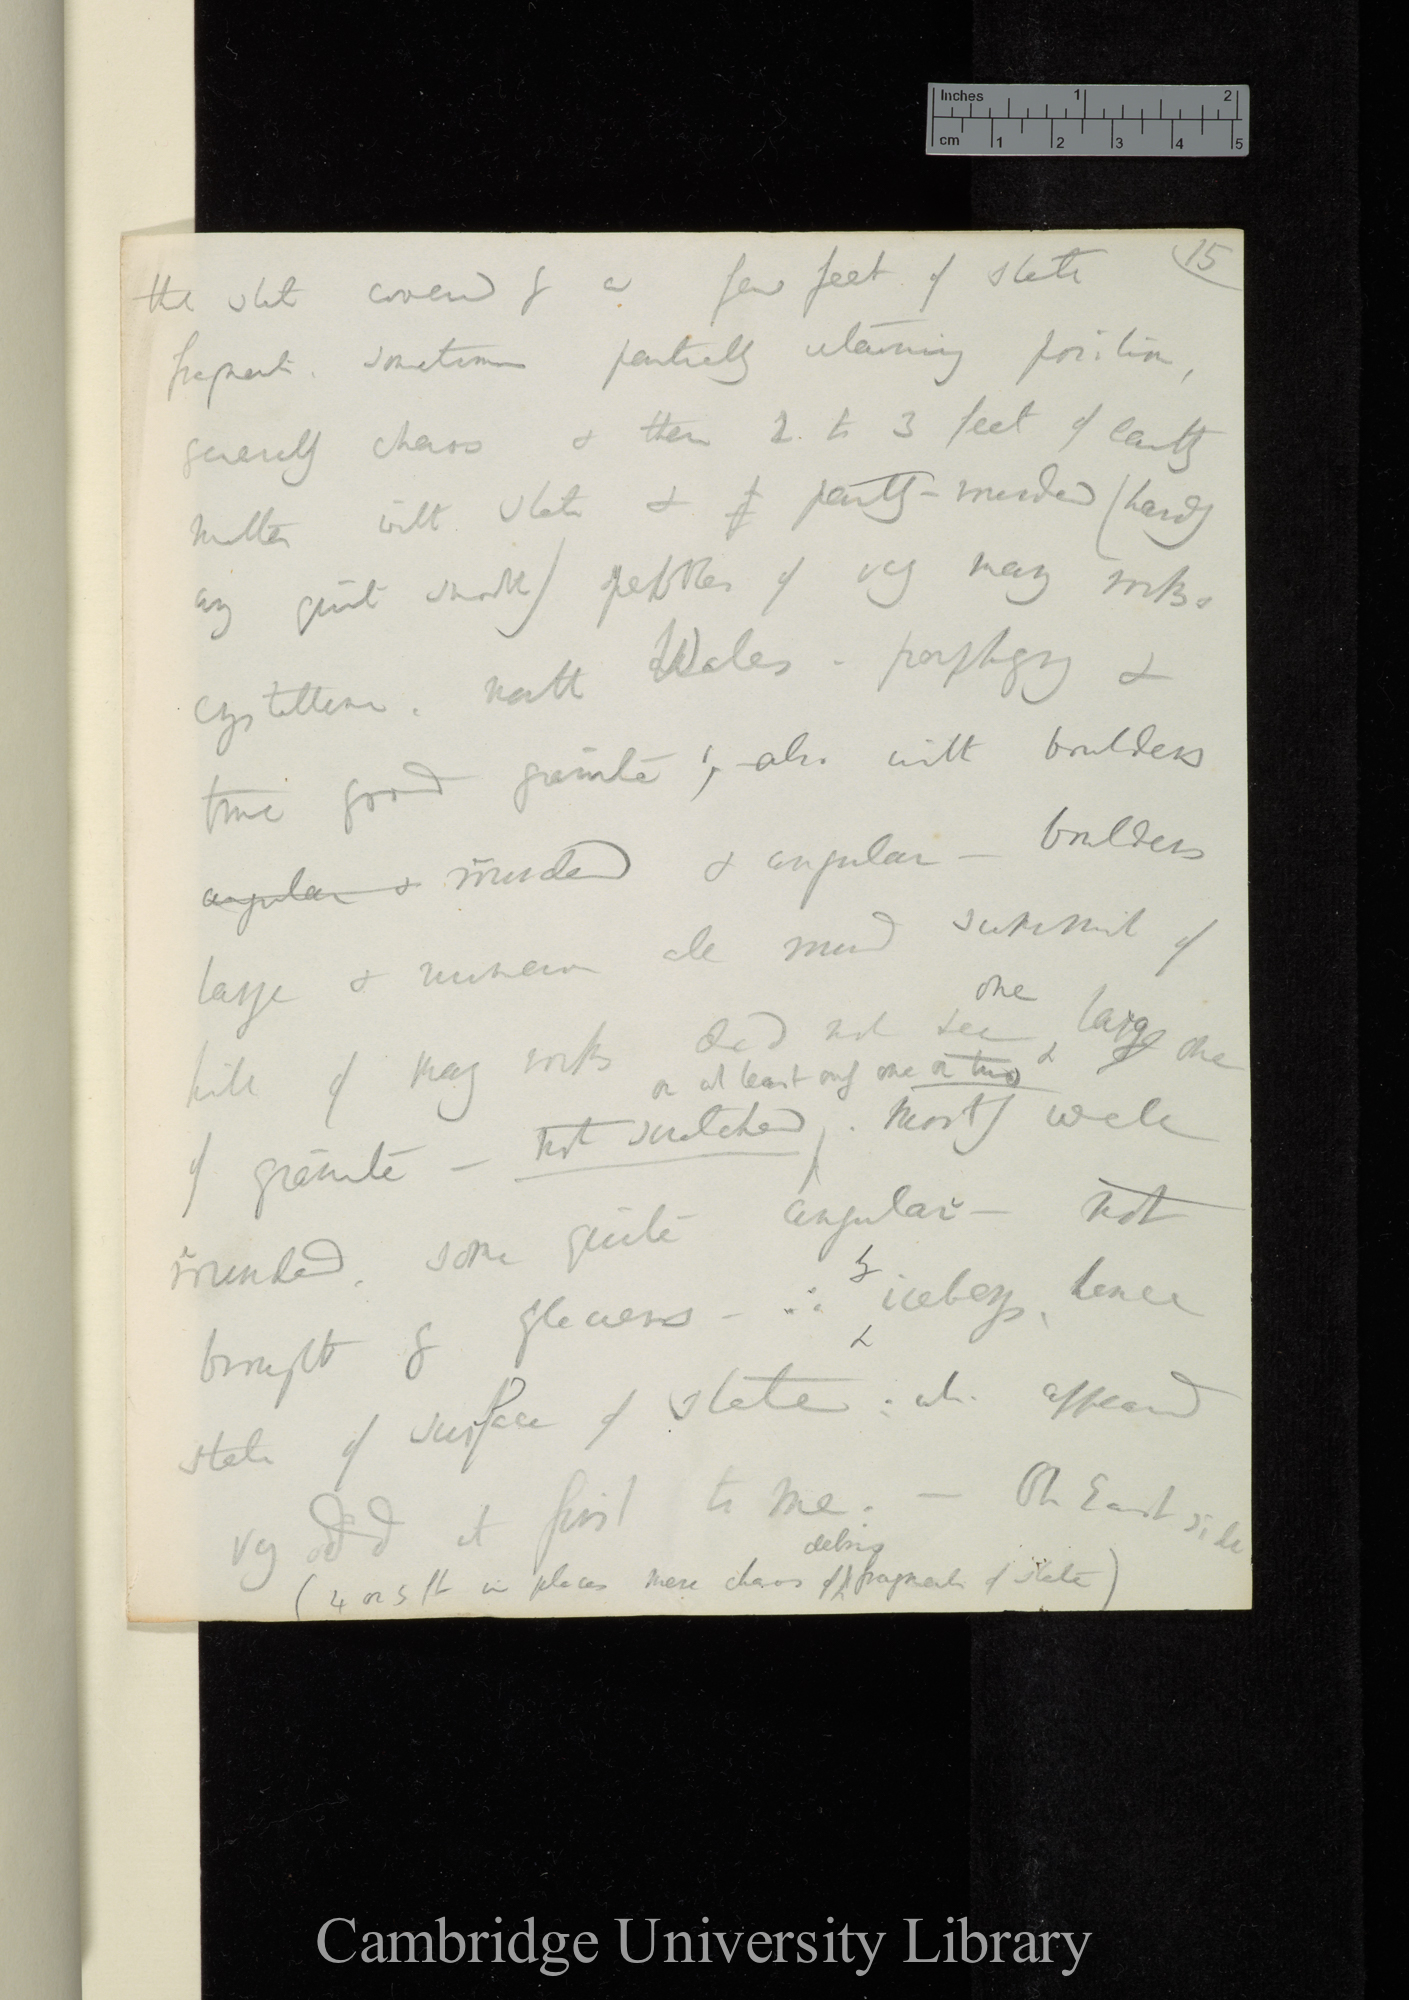 Inches 1 2
cm 1 2 3 4 5
15
the slate covered by a few feet of slate
fragments. sometimes partially retaining position,
generally chaos & then 2 to 3 feet of earthy
matter with slate & partly-rounded (hardly
any quite smooth) pebbles of very many rocks.
crystalline. North Wales - porphyry &
true good granite; also with boulders
angular & rounded & angular — boulders
large & numerous all round summit of
one
hill of many rocks did not see large one
or at least only one or two
of granite — not scratched. Mostly well
rounded. some quite angular — not
by
brought by glaciers — ∴ icebergs, hence
state of surface of slate: wh. appeared
very odd at first to me. — On East side
debris
(4 or 5 ft in places mere chaos of fragments of slate)
Cambridge University Library